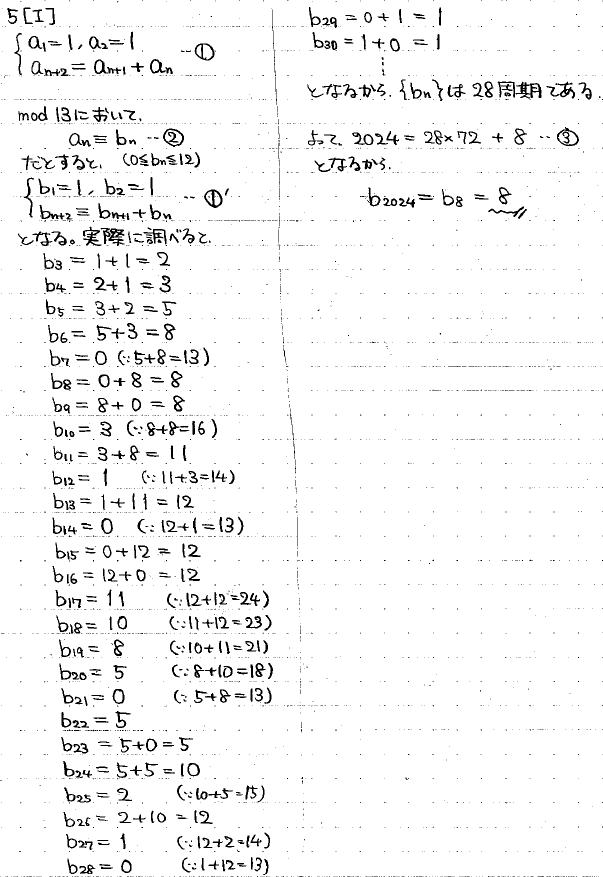 5[I]
{a₁=1, a₂=1
{aₙ₊₂=aₙ₊₁+aₙ …①
mod 13において,
aₙ≡bₙ …②
だとすると, (0≦bₙ≦12)
{b₁=1, b₂=1
{bₙ₊₂≡bₙ₊₁+bₙ …①'
となる。実際に調べると,
b₃=1+1=2
b₄=2+1=3
b₅=3+2=5
b₆=5+3=8
b₇=0 (∵5+8=13)
b₈=0+8=8
b₉=8+0=8
b₁₀=3 (∵8+8=16)
b₁₁=3+8=11
b₁₂=1 (∵11+3=14)
b₁₃=1+11=12
b₁₄=0 (∵12+1=13)
b₁₅=0+12=12
b₁₆=12+0=12
b₁₇=11 (∵12+12=24)
b₁₈=10 (∵11+12=23)
b₁₉=8 (∵10+11=21)
b₂₀=5 (∵8+10=18)
b₂₁=0 (∵5+8=13)
b₂₂=5
b₂₃=5+0=5
b₂₄=5+5=10
b₂₅=2 (∵10+5=15)
b₂₆=2+10=12
b₂₇=1 (∵12+2=14)
b₂₈=0 (∵1+12=13)
b₂₉=0+1=1
b₃₀=1+0=1
⋮
となるから, {bₙ}は28周期である.
よって, 2024=28×72+8 …③
となるから,
b₂₀₂₄=b₈=8